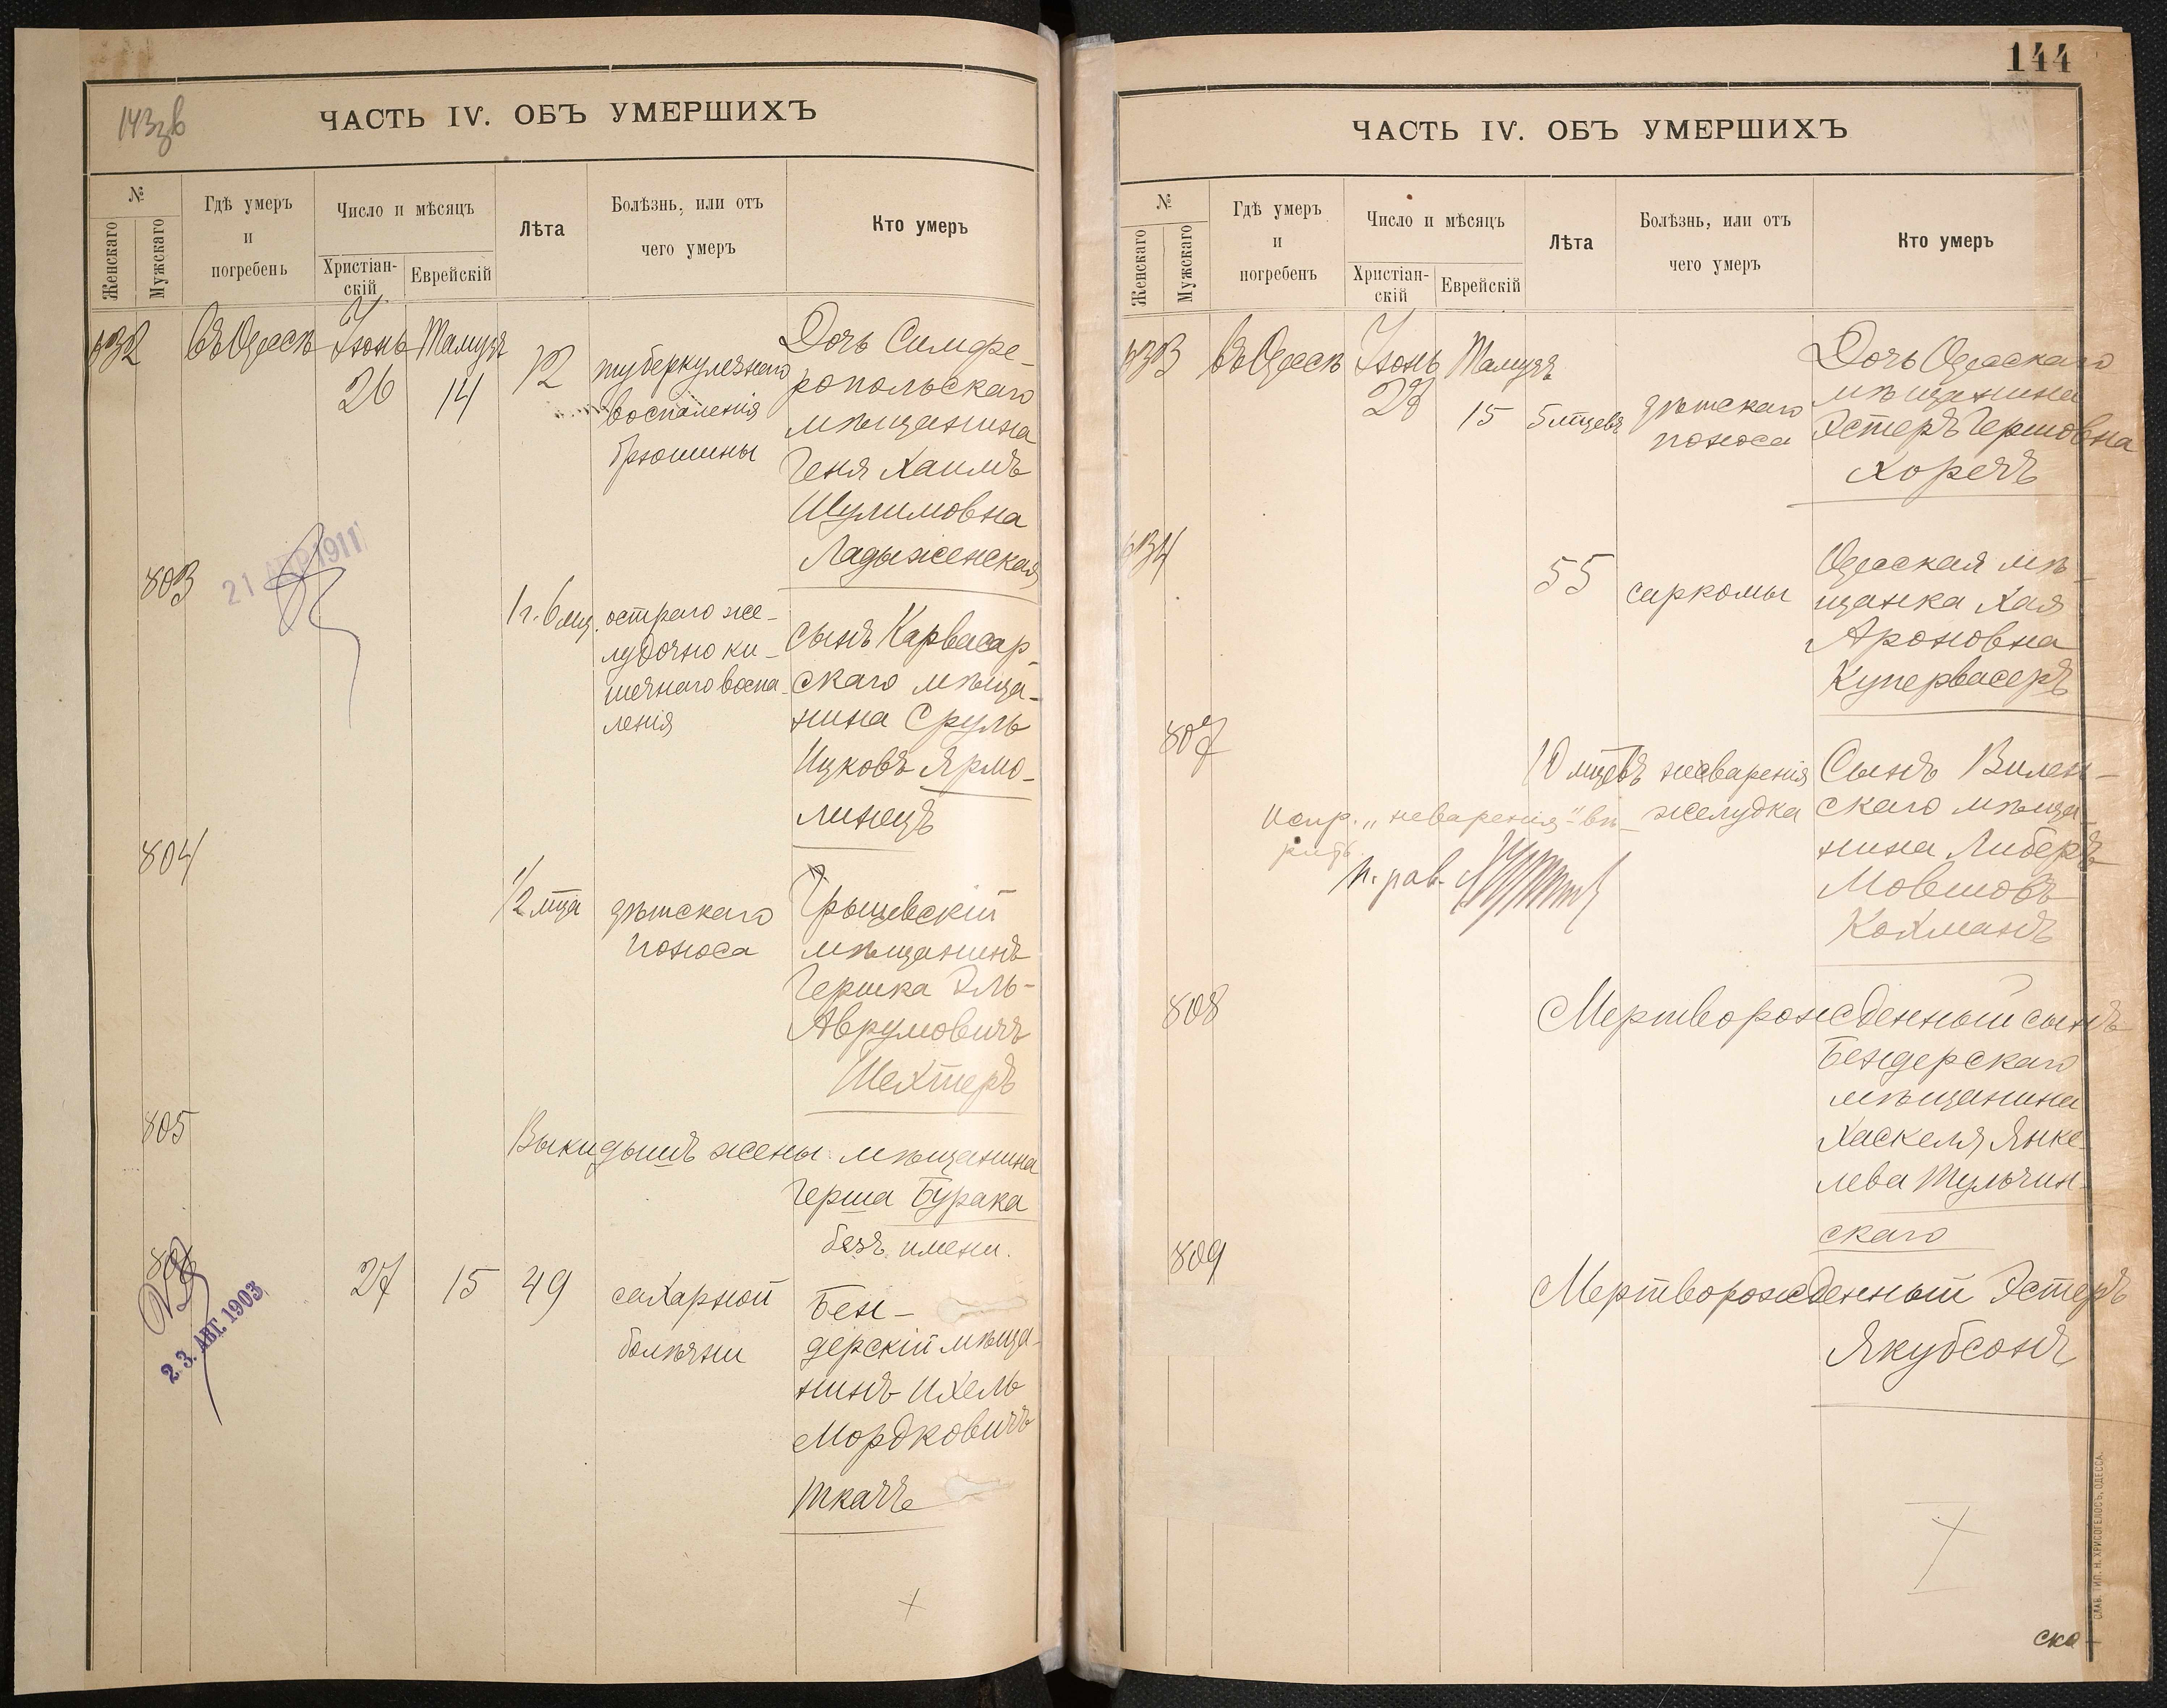 143зв
ЧАСТЬ IV. ОБЪ УМЕРШИХЪ
№
Женскаго
Мужскаго
Гдѣ умеръ
и
погребенъ
Число и мѣсяцъ
Христіан-
скій
Еврейскій
Лѣта
Болѣзнь, или отъ
чего умеръ
Кто умеръ
632
въ Одессѣ
Іюнь
26
Тамузъ
14
12
туберкулезнаго
воспаленія
брюшины
Дочь Симфе-
ропольскаго
мѣщанина
Геня Хаимъ
Шулимовна
Ладыженская
803
21 АПР 1911
1 г. 6 мц.
остраго же-
лудочно ки-
шечнаго воспа-
ленія
сынъ Карвасар-
скаго мѣща-
нина Сруль
Ицковъ Ярмо-
линецъ
804
1/2 мца
дѣтскаго
поноса
Грыцевскій
мѣщанинъ
Гершка Эль-
Аврумовичъ
Шехтеръ
805
Выкидышъ жены мѣщанина
Герша Бурака
безъ имени.
806
23. АВГ. 1903
27
15
49
сахарной
болѣзни
Бен-
дерскій мѣща-
нинъ Ихель
Мордковичъ
Ткачъ
144
ЧАСТЬ IV. ОБЪ УМЕРШИХЪ
№
Женскаго
Мужскаго
Гдѣ умеръ
и
погребенъ
Число и мѣсяцъ
Христіан-
скій
Еврейскій
Лѣта
Болѣзнь, или отъ
чего умеръ
Кто умеръ
633
въ Одессѣ
Іюнь
Тамузъ
15
5 мцевъ
дѣтскаго
поноса
Дочь Одесскаго
мѣщанина
Эстеръ Гершовна
Хорежъ
634
55
саркомы
Одесская мѣ-
щанка Хая
Ароновна
Купервасеръ
807
10 мцевъ
несваренія
желудка
Сынъ Вилен-
скаго мѣща-
нина Либеръ
Мовшовъ
Кохманъ
Испр. „неваренія" вѣ-
рить.
п. рав.
808
Мертворожденный сынъ
Бендерскаго
мѣщанина
Хаскеля Янке-
лева Тульчин-
скаго
809
Мертворожденный Эстеръ
Якубсонъ
ска-
СЛАВ. ТИП. Н. ХРИСОГЕЛОСЪ, ОДЕССА.